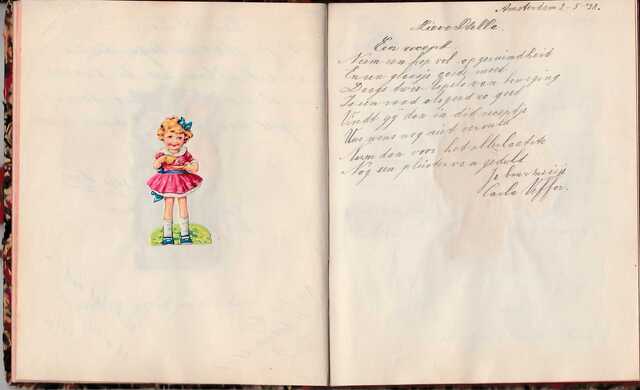 Amsterdam 2-5-'38.
Lieve Stella.
Een recept.
Neem een kop vol opgeruimdheid
En een glaasje goede moed
Doe er twee lepels van beweging
In een raad altijd zo goed
Vindt gij dan in dit receptje
Uw wens nog niet vervuld
Neem dan voor het allerlaatste
Nog een pleister van geduld
Je
Carla